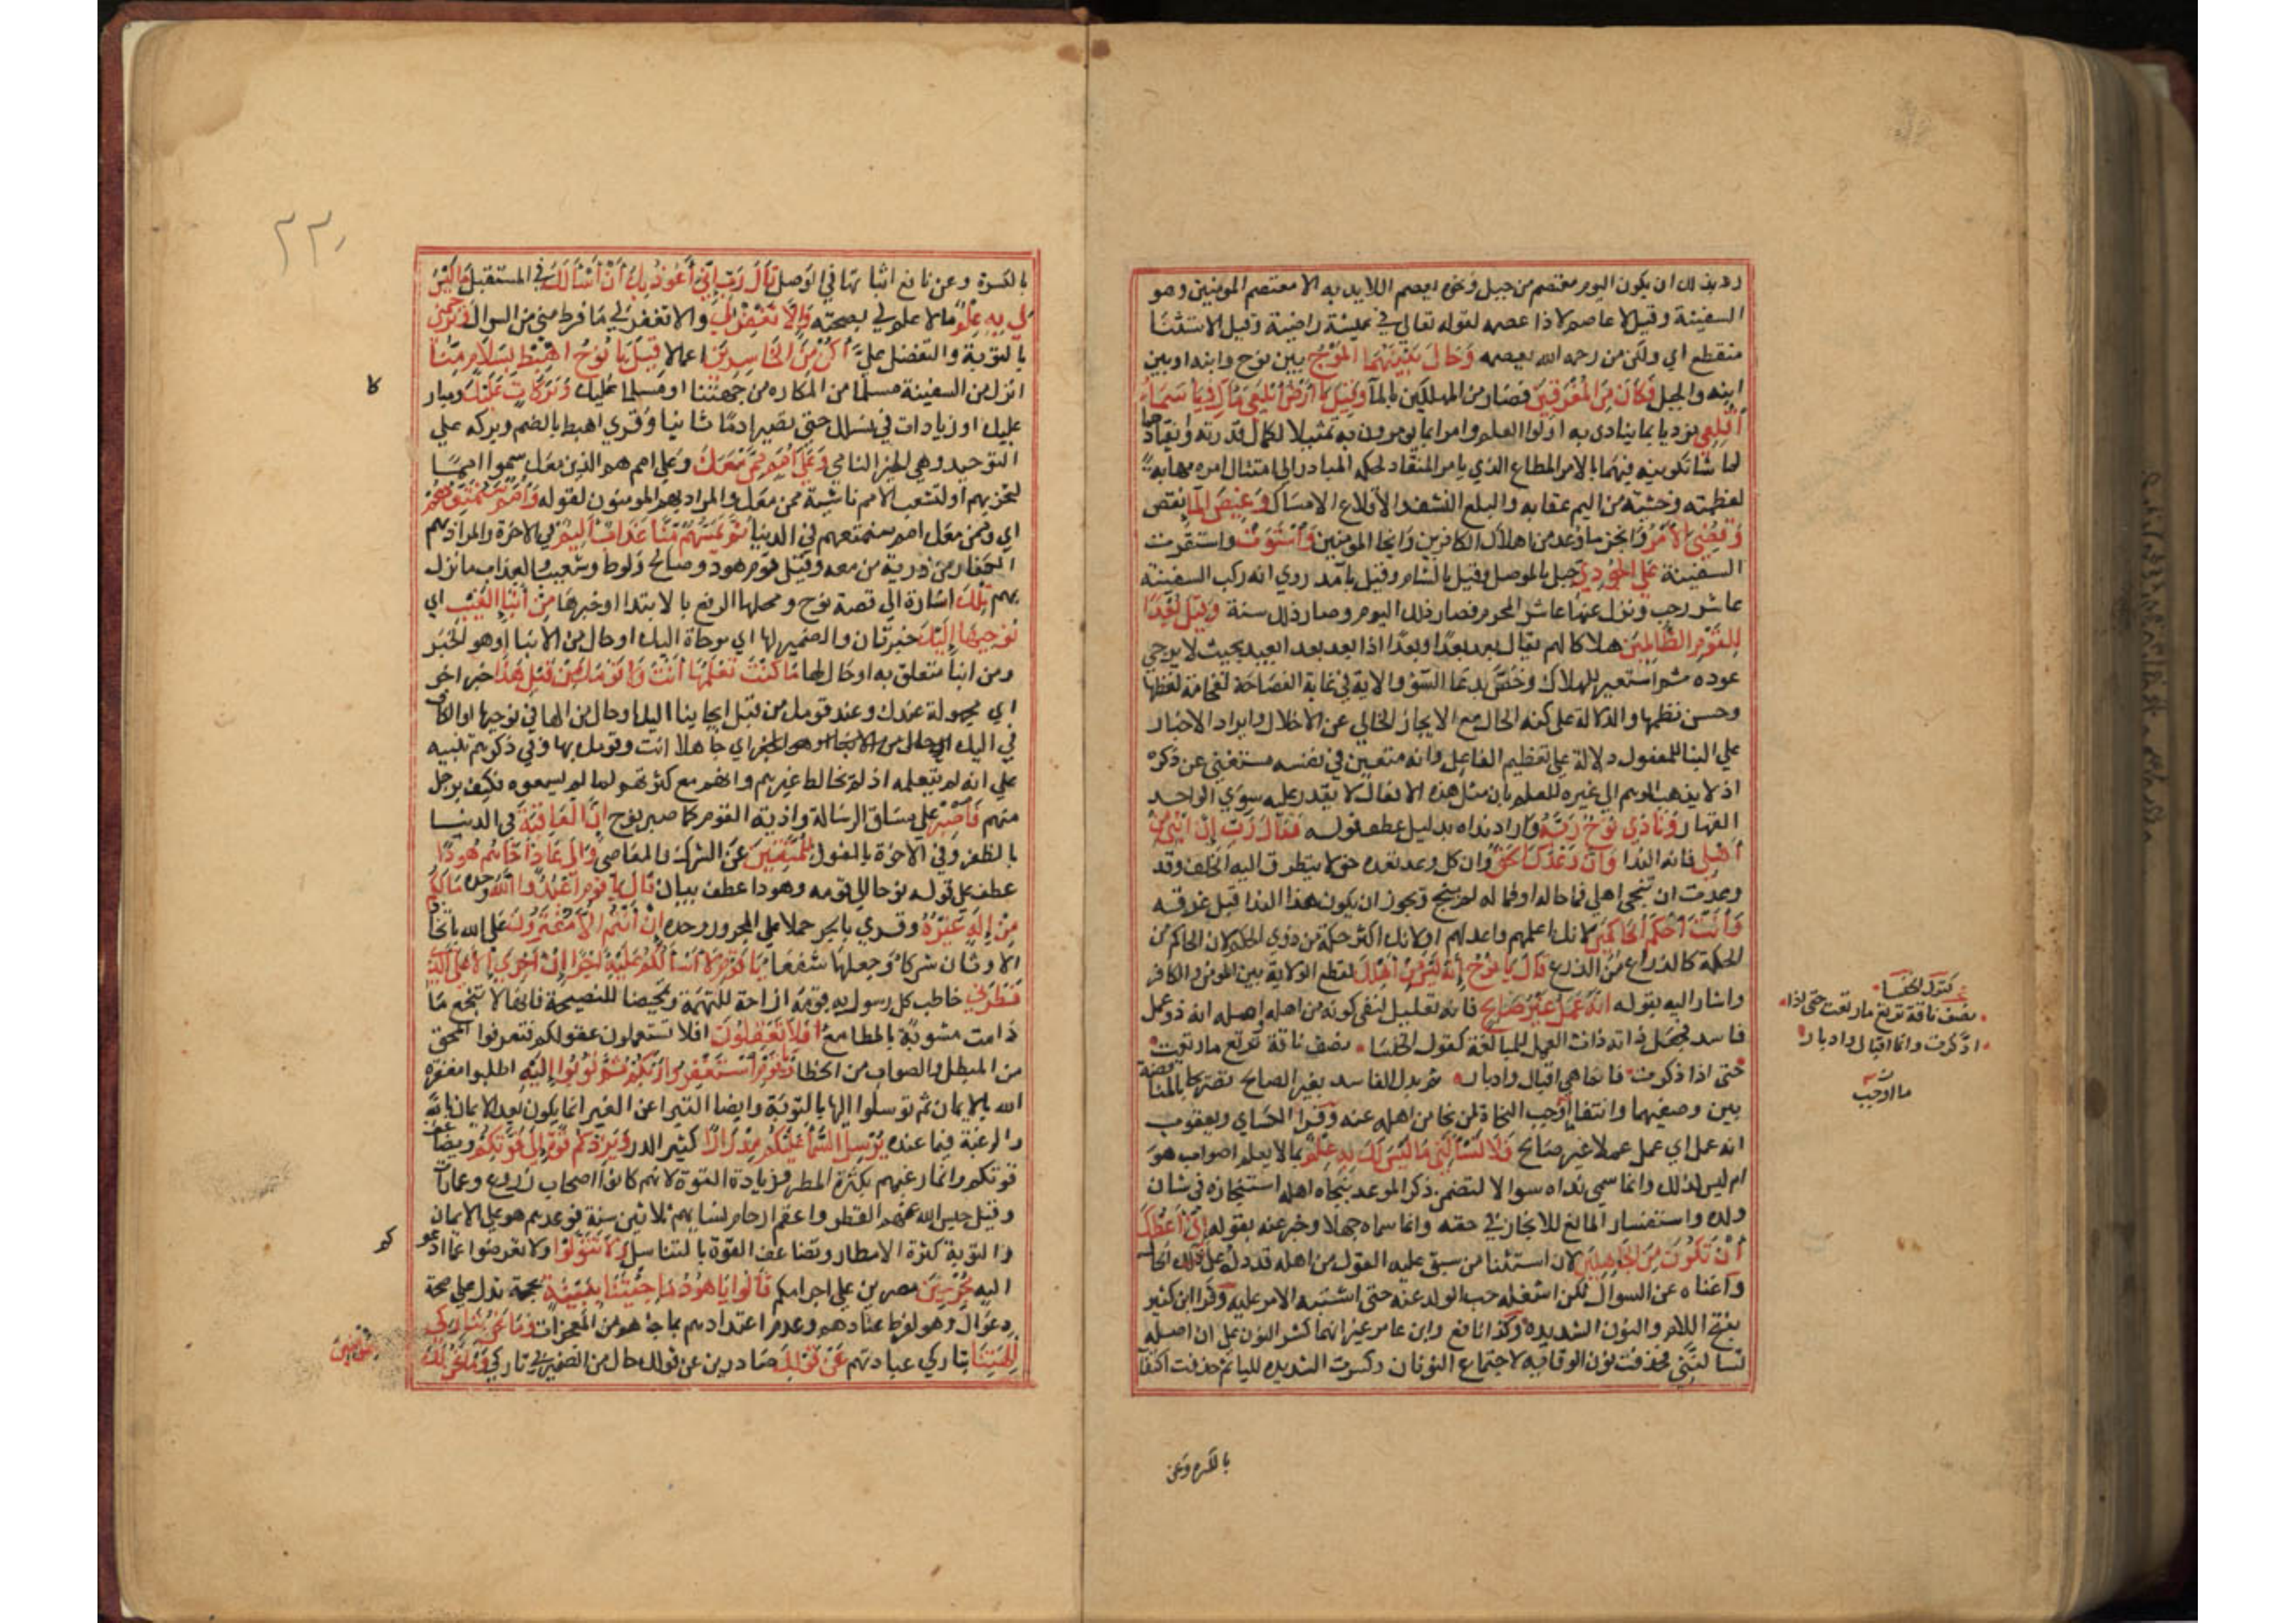 رد بذلك ان يكون اليوم معتصم من جبل ونحوه يعصم اللايذ به الا معتصم المومنين وهو
السفينة وقيل لا عاصم لا ذا عصمه لقوله تعالى في عيشة راضية وقيل الاستثنا
منقطع اي ولكن من رحمه الله يعصمه وَحَالَ بَيْنَهُمَا المَوْجُ بين نوح وابنه او بين
ابنه والجبل فَكَانَ مِنَ المُغْرَقِينَ فصار من المهلكين بالما وَقِيلَ يَا أَرْضُ ابْلَعِي مَاءَكِ وَيَا سَمَاءُ
أَقْلِعِي نوديا بما ينادى به اولوا العلم وامرا بما يومرون به تمثيلا لكمال قدرته وانقيادهما
لما شا تكوينه فيهما بالامر المطاع الذي يامر المنقاد لحكمه المبادر الى امتثال امره مهابة
لعظمته وخشية من اليم عقابه والبلع النشف والاقلاع الامساك وَغِيضَ المَا نقص
وَقُضِيَ الأَمْرُ وانجز ما وعد من اهلاك الكافرين وانجا المومنين وَاسْتَوَتْ واستقرت
السفينة عَلَى الجُودِيِّ جبل بالموصل وقيل بالشام وقيل بامد روي انه ركب السفينة
عاشر رجب ونزل عنها عاشر المحرم فصام ذلك اليوم وصار ذلك سنة وَقِيلَ بُعْدًا
لِلقَوْمِ الظَّالِمِينَ هلاكا لهم يقال بعد بعدا وبعدا اذا بعد بعدا بعيدا بحيث لا يرجي
عوده ثم استعير للهلاك وخص بدعا السؤ والاية في غاية الفصاحة لفخامة لفظها
وحسن نظمها والدلالة على كنه الحال مع الايجاز الخالي عن الاخلال وايراد الاخبار
على البنا للمفعول دلالة على تعظيم الفاعل وانه متعين في نفسه مستغنى عن ذكره
اذ لا يذهب الوهم الى غيره للعلم بان مثل هذه الافعال لا يقدر عليه سوي الواحد
القهار وَنَادَى نُوحٌ رَبَّهُ واراد نداه بدليل عطف قوله فَقَالَ رَبِّ إِنَّ ابْنِي مِنْ
أَهْلِي فانه الندا وَإِنَّ وَعْدَكَ الحَقُّ وان كل وعد تعده حق لا يتطرق اليه الخلف وقد
وعدت ان تنجي اهلي فما حاله او فما له لم ينج ويجوز ان يكون هذا الندا قبل غرقه
وَأَنْتَ أَحْكَمُ الحَاكِمِينَ لانك اعلمهم واعدلهم او لانك اكثر حكمة من ذوي الحكم لان الحاكم من
الحكمة كالدارع من الدرع قَالَ يَا نُوحُ إِنَّهُ لَيْسَ مِنْ أَهْلِكَ لقطع الولاية بين المومن والكافر
واشار اليه بقوله إِنَّهُ عَمَلٌ غَيْرُ صَالِحٍ فانه تعليل لنفى كونه من اهله اصله انه ذو عمل
فاسد فجعل ذاته ذات العمل للمبالغة كقول الخنسا تصف ناقة ترتع ما رتعت
حتى اذا ذكرت فانما هي اقبال وادبار ثم بدل الفاسد بغير الصالح تصريحا بالمناقضة
بين وصفيهما وانتفا ما اوجب النجاة لمن نجا من اهله عنه وقرا الكساي ويعقوب
انه عمل اي عمل عملا غير صالح فَلَا تَسْأَلْنِي مَا لَيْسَ لَكَ بِهِ عِلْمٌ ما لا يعلم اصواب هو
ام ليس كذلك وانما سمي نداه سوالا لتضمن ذكر الموعد بنجاة اهله استنجازه في شان
ولده واستفسار المانع للانجاز في حقه وانما سماه جهلا وزجر عنه بقوله إِنِّي أَعِظُكَ
أَنْ تَكُونَ مِنَ الجَاهِلِينَ لان استثنا من سبق عليه القول من اهله قد دله على الحال
واغناه عن السوال لكن اشغله حب الولد عنه حتى اشتبه الامر عليه وقرا ابن كثير
بفتح اللام والنون الشديدة وكذا نافع وابن عامر غير انهما كسرا النون على ان اصله
تسالنني فحذفت نون الوقاية لاجتماع النونات وكسرت الشديدة لليا ثم حذفت اكتفا
كقول الخنسا
تصف ناقة ترتع ما رتعت حتى اذا
ادكرت وانما اقبال وادبار
ما اوجب
بالكسرة وعن
٢٢٠
بالكسرة وعن نافع اثباتها في الوصل قَالَ رَبِّ إِنِّي أَعُوذُ بِكَ أَنْ أَسْأَلَكَ في المستقبل مَا لَيْسَ
لِي بِهِ عِلْمٌ ما لا علم لي بصحته وَإِلَّا تَغْفِرْ لِي والا تغفر لي ما فرط مني من السوال وَتَرْحَمْنِي
بالتوبة والتفضل علي أَكُنْ مِنَ الخَاسِرِينَ اعمالا قِيلَ يَا نُوحُ اهْبِطْ بِسَلَامٍ مِنَّا
انزل من السفينة مسلما من المكاره من جهتنا او مسلما عليك وَبَرَكَاتٍ عَلَيْكَ ومبار
عليك او زيادات في نسلك حتى تصير ادما ثانيا وقري اهبط بالضم وبركة علي
التوحيد وهي الخير النامي وَعَلَى أُمَمٍ مِمَّنْ مَعَكَ وعلى امم هم الذين معك سموا امما
لتحزبهم او لتشعب الامم ناشية ممن معك والمراد بهم المومنون لقوله وَأُمَمٌ سَنُمَتِّعُهُمْ
اي وممن معك امم سنمتعهم في الدنيا ثُمَّ يَمَسُّهُمْ مِنَّا عَذَابٌ أَلِيمٌ في الاخرة والمراد بهم
الكفار من ذرية من معه وقيل قوم هود وصالح ولوط وشعيب والعذاب ما نزل
بهم تِلْكَ اشارة الى قصة نوح ومحلها الرفع بالابتدا وخبرها مِنْ أَنْبَا الغَيْبِ اي
نُوحِيهَا إِلَيْكَ خبر ثان والضمير لها اي موحاة اليك او حال من الانبا او هو الخبر
ومن انبا متعلق به او حال لها مَا كُنْتَ تَعْلَمُهَا أَنْتَ وَلَا قَوْمُكَ مِنْ قَبْلِ هَذَا خبر اخر
اي مجهولة عندك وعند قومك من قبل ايحاينا اليك او حال من الها في نوحيها او الكاف
في اليك اي جاهلا انت وقومك بها وفي ذكرهم تنبيه
على انه لم يتعلمه اذ لم يخالط غيرهم وانهم مع كثرتهم لما لم يسمعوه فكيف برجل
منهم فَاصْبِرْ على مشاق الرسالة واذية القوم كما صبر نوح إِنَّ العَاقِبَةَ في الدنيا
بالظفر وفي الاخرة بالفوز لِلْمُتَّقِينَ عن الشرك والمعاصي وَإِلَى عَادٍ أَخَاهُمْ هُودًا
عطف على قوله نوحا الى قومه وهودا عطف بيان قَالَ يَا قَوْمِ اعْبُدُوا اللَّهَ وحده مَا لَكُمْ
مِنْ إِلَهٍ غَيْرُهُ وقري بالجر حملا على المجرور وحده إِنْ أَنْتُمْ إِلَّا مُفْتَرُونَ على الله باتخاذ
الاوثان شركا وجعلها شفعا يَا قَوْمِ لَا أَسْأَلُكُمْ عَلَيْهِ أَجْرًا إِنْ أَجْرِيَ إِلَّا عَلَى الَّذِي
فَطَرَنِي خاطب كل رسول به قومه ازاحة للتهمة وتمحيضا للنصيحة فانها لا تنجع ما
دامت مشوبة بالمطامع أَفَلَا تَعْقِلُونَ افلا تستعملون عقولكم فتعرفوا المحق
من المبطل والصواب من الخطا وَيَا قَوْمِ اسْتَغْفِرُوا رَبَّكُمْ ثُمَّ تُوبُوا إِلَيْهِ اطلبوا مغفرة
الله بالايمان ثم توسلوا اليها بالتوبة وايضا التبرا عن الغير انما يكون بعد الايمان بالله
والرغبة فيما عنده يُرْسِلِ السَّمَا عَلَيْكُمْ مِدْرَارًا كثير الدر وَيَزِدْكُمْ قُوَّةً إِلَى قُوَّتِكُمْ ويضاعف
قوتكم وانما رغبهم بكثرة المطر وزيادة القوة لانهم كانوا اصحاب زروع وعمارات
وقيل حبس الله عنهم القطر واعقم ارحام نسايهم ثلاثين سنة فوعدهم هود على الايمان
والتوبة كثرة الامطار وتضاعف القوة بالتناسل وَلَا تَتَوَلَّوْا ولا تعرضوا عما ادعوكم
اليه مُجْرِمِينَ مصرين على اجرامكم قَالُوا يَا هُودُ مَا جِئْتَنَا بِبَيِّنَةٍ بحجة تدل على صحة
دعواك وهو لفرط عنادهم وعدم اعتدادهم بما جاهم من المعجزات وَمَا نَحْنُ بِتَارِكِي
آلِهَتِنَا بتاركي عبادتهم عَنْ قَوْلِكَ صادرين عن قولك حال من الضمير في تاركي وَمَا نَحْنُ لَكَ
بمومنين